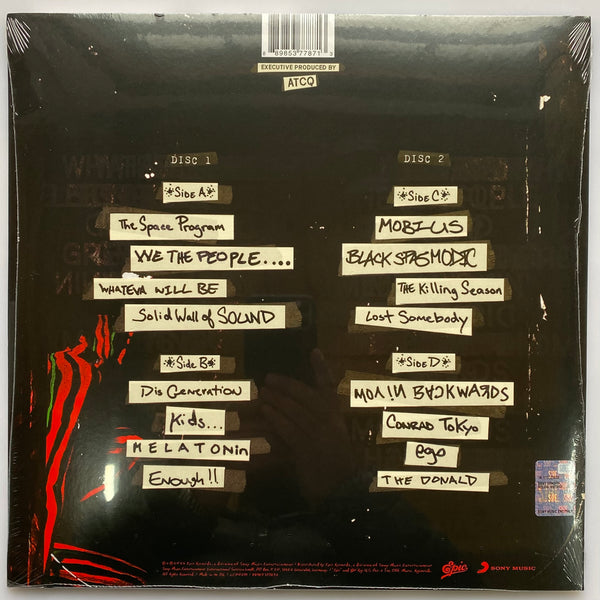 8 89853 77871 3
EXECUTIVE PRODUCED BY
ATCQ
DISC 1
*SIDE A*
The Space Program
WE THE PEOPLE....
WHATEVA WILL BE
Solid Wall of SOUND
*Side B*
Dis Generation
Kids...
MELATONin
Enough!!
DISC 2
*SIDE C*
MOBIUS
BLACK SPASMODIC
The Killing Season
Lost Somebody
*SIDE D*
MOVIN BACKWARDS
CONRAD TOKYO
ego
THE DONALD
Epic
SONY MUSIC